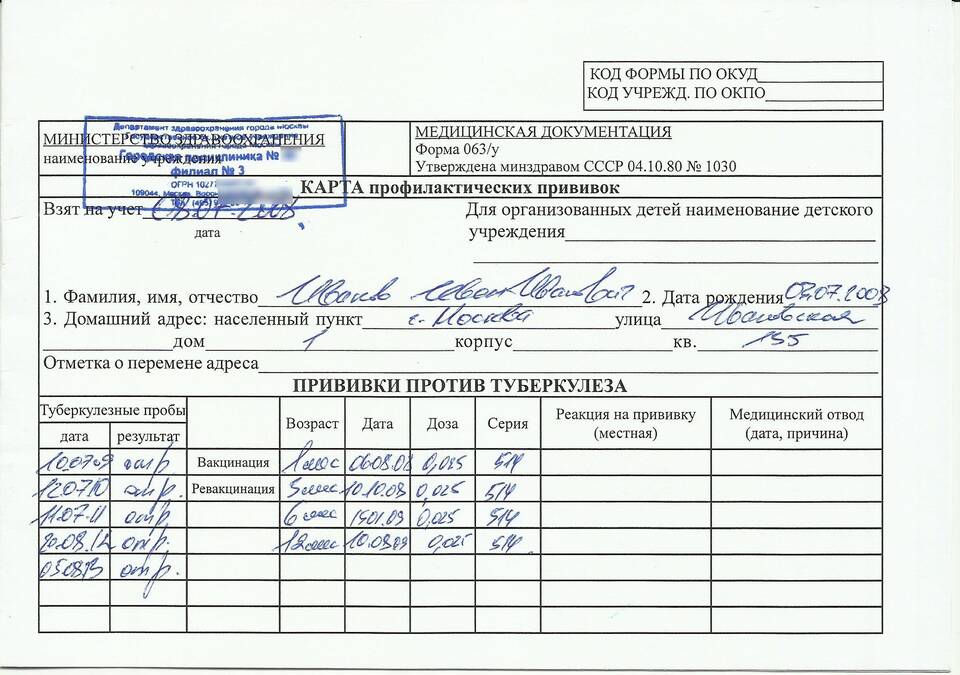 КОД ФОРМЫ ПО ОКУД
КОД УЧРЕЖД. ПО ОКПО
Департамент здравоохранения города Москвы
МИНИСТЕРСТВО ЗДРАВООХРАНЕНИЯ
наименование учреждения
Городская поликлиника №
филиал № 3
ОГРН 1027
109044, Москва,
МЕДИЦИНСКАЯ ДОКУМЕНТАЦИЯ
Форма 063/у
Утверждена минздравом СССР 04.10.80 № 1030
КАРТА профилактических прививок
Взят на учет 08.07.2008
дата
Для организованных детей наименование детского
учреждения
1. Фамилия, имя, отчество Иванов Иван Иванович 2. Дата рождения 07.2008
3. Домашний адрес: населенный пункт г. Москва улица Ивановская
дом 1 корпус кв. 155
Отметка о перемене адреса
ПРИВИВКИ ПРОТИВ ТУБЕРКУЛЕЗА
Туберкулезные пробы Возраст Дата Доза Серия Реакция на прививку (местная) Медицинский отвод (дата, причина)
дата результат
10.07.09 отр. Вакцинация 1 мес 06.08.08 0,025 514
12.07.10 отр. Ревакцинация 3 мес 10.10.08 0,025 514
11.07.11 отр. 6 мес 15.01.09 0,025 514
20.08.12 отр. 12 мес 10.08.09 0,025 514
05.08.13 отр.